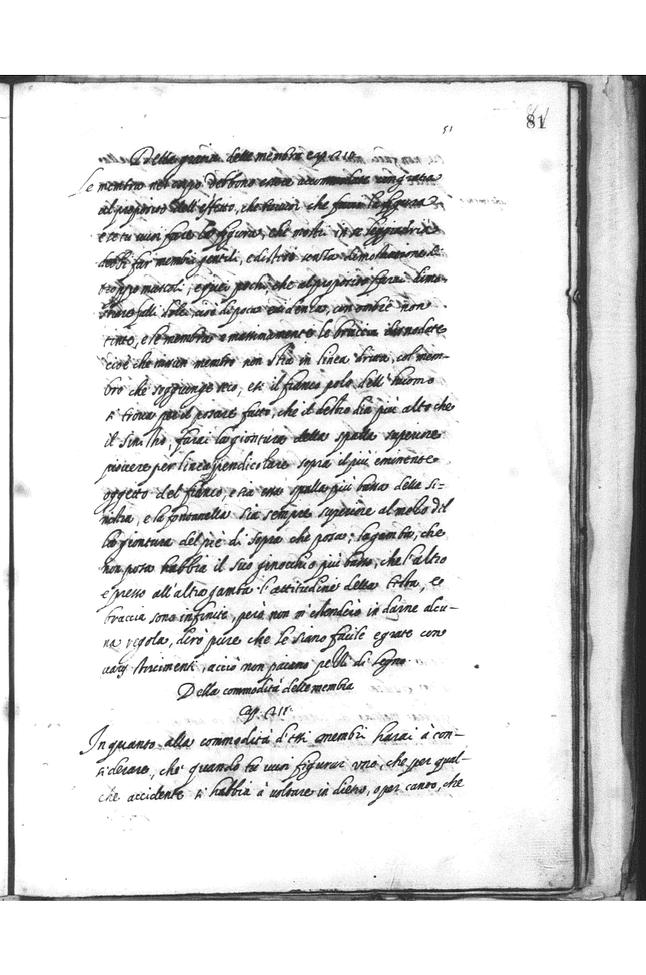 51
81
Della gratia delle membra cap. 210
Le membra nel corpo debbono essere accommodate con gratia
al proposito dell' effetto, che tu vuoi che faccia la figura
e se tu vuoi fare la figura, che mostri in se leggiadria
debbi far membri gentili, e distesi senza dimostratione di
troppo muscoli, e quei pochi che al proposito farai dimo-
strare falli dolci cioè di poca evidenza, con ombre non
tinte, e le membra e massimamente le braccia disnodate
cioè che niun membro non stia in linea dritta, col mem-
bro che s'aggiunge seco, e s' il fianco polo dell' huomo
si trova per il posare fatto, che il destro sia più alto che
il sinistro, farai la giontura della spalla superiore
piovere per linea perpendicolare sopra il più eminente
oggetto del fianco, e sia essa spalla più bassa della si-
nistra, e la fontanella sia sempre superiore al mezo del
la giontura del piè di sopra che posa; la gamba, che
non posa habbia il suo ginocchio più basso, che l'altro
e presso all' altra gamba. l'attitudine della testa, e
braccia sono infinite, però non m'estenderò in darne alcu-
na regola, dirò pure che le siano facile e grate con
varij storcimenti, acciò non paiano pezzi di legno.
Della commodità delle membra
Cap. 211.
In quanto alla commodità d'essi membri harai à con-
siderare, che quando tu vuoi figurar uno, che per qual-
che accidente si habbia à voltare in dietro, o per canto, che